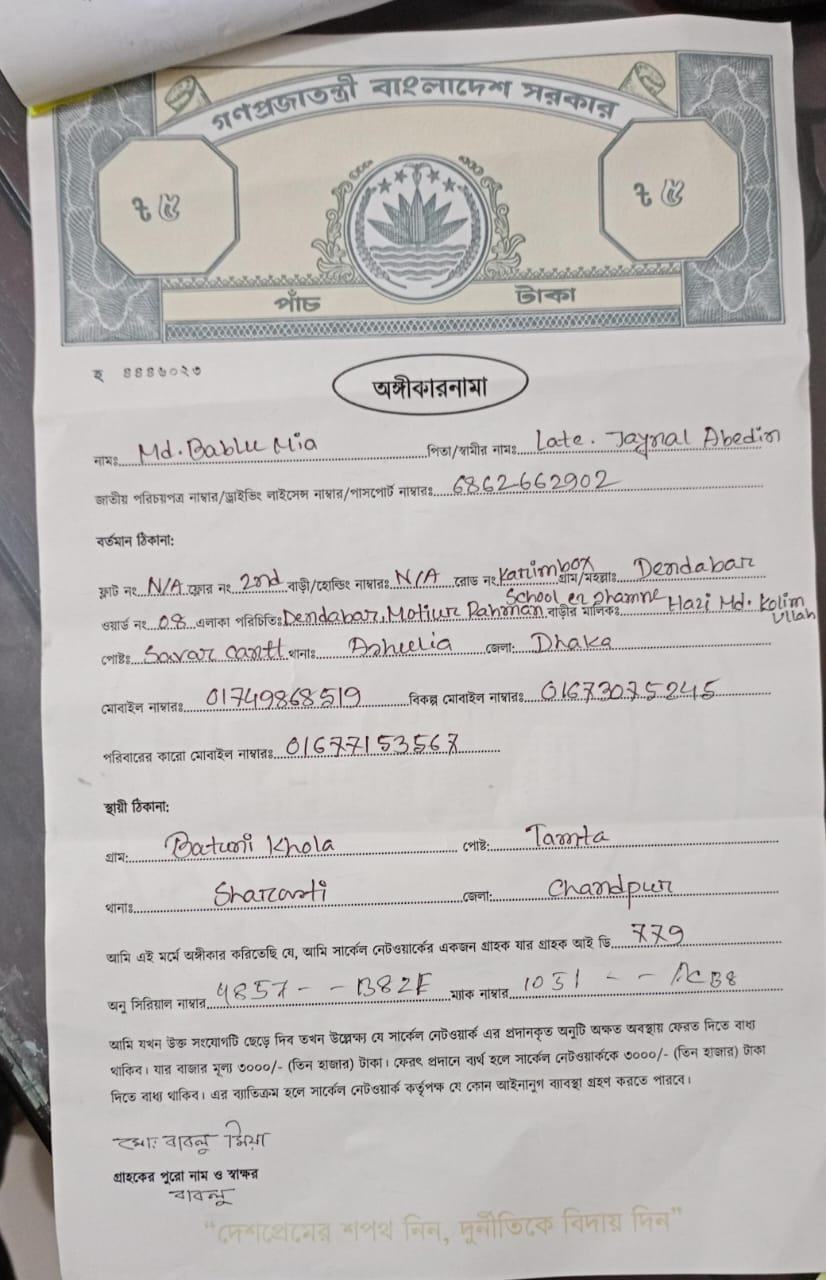 গণপ্রজাতন্ত্রী বাংলাদেশ সরকার
৳ ৫ ৳ ৫
পাঁচ টাকা
হ ৪৪৪৬০২৩
অঙ্গীকারনামা
নামঃ Md. Bablu Mia পিতা/স্বামীর নামঃ Late. Jaynal Abedin
জাতীয় পরিচয়পত্র নাম্বার/ড্রাইভিং লাইসেন্স নাম্বার/পাসপোর্ট নাম্বারঃ 6862662902
বর্তমান ঠিকানা:
ফ্লাট নং N/A ফ্লোর নং 2nd বাড়ী/হোল্ডিং নাম্বারঃ N/A রোড নং Karimbox গ্রাম/মহল্লাঃ Dendabar
School er
ওয়ার্ড নং 08 এলাকা পরিচিতিঃ Dendabar, Motiur Rahman বাড়ীর মালিকঃ Hazi Md. Kolim Ullah
পোষ্টঃ Savar cantt থানাঃ Asheulia জেলা: Dhaka
মোবাইল নাম্বারঃ 01749868519 বিকল্প মোবাইল নাম্বারঃ 01673075245
পরিবারের কারো মোবাইল নাম্বারঃ 01677153567
স্থায়ী ঠিকানা:
গ্রাম: Batuni Khola পোষ্ট: Tamta
থানাঃ Sharasti জেলা: Chandpur
আমি এই মর্মে অঙ্গীকার করিতেছি যে, আমি সার্কেল নেটওয়ার্কের একজন গ্রাহক যার গ্রাহক আই ডি 779
অনু সিরিয়াল নাম্বার 4857 - - B82F ম্যাক নাম্বার 1031 - - AC B8
আমি যখন উক্ত সংযোগটি ছেড়ে দিব তখন উল্লেক্ষ্য যে সার্কেল নেটওয়ার্ক এর প্রদানকৃত অনুটি অক্ষত অবস্থায় ফেরত দিতে বাধ্য
থাকিব। যার বাজার মূল্য ৩০০০/- (তিন হাজার) টাকা। ফেরৎ প্রদানে ব্যর্থ হলে সার্কেল নেটওয়ার্ককে ৩০০০/- (তিন হাজার) টাকা
দিতে বাধ্য থাকিব। এর ব্যতিক্রম হলে সার্কেল নেটওয়ার্ক কর্তৃপক্ষ যে কোন আইনানুগ ব্যাবস্থা গ্রহণ করতে পারবে।
মোঃ বাবলু মিয়া
গ্রাহকের পুরো নাম ও স্বাক্ষর
বাবলু
"দেশপ্রেমের শপথ নিন, দুর্নীতিকে বিদায় দিন"